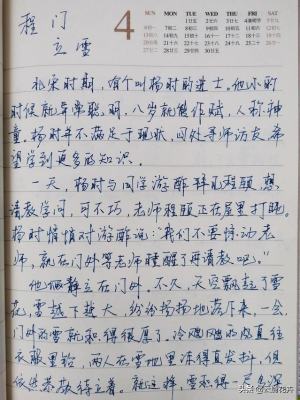 程门
立雪
4
SUN MON TUE WED THU FRI SAT
北宋时期,有个叫杨时的进士,他小的
时候就异常聪明,八岁就能作赋,人称神
童。杨时并不满足于现状,四处寻师访友,希
望学到更多的知识。
一天,杨时与同学游酢拜见程颐,想
请教学问,可不巧,老师程颐正在屋里打盹。
杨时悄悄对游酢说:“我们不要惊动老
师,就在门外等老师睡醒了再请教吧。”
他俩静立在门外。不久,天空飘起了雪
花,雪越下越大,纷纷扬扬地落下来,一会,
门外的雪就积得很厚了。冷飕飕的风直往
衣服里钻,两人在雪地里冻得直发抖,但
依然恭敬待立着。就这样,雪积得一尺多深
头条